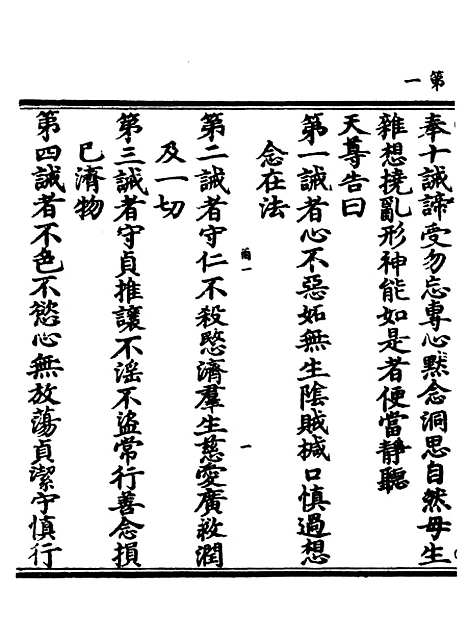 第一
奉十誡諦受勿忘專心默念洞思自然毋生
雜想撓亂形神能如是者便當靜聽
天尊告曰
第一誡者心不惡妬無生陰賊搣口慎過想
念在法
第二誡者守仁不殺愍濟羣生慈愛廣救潤
及一切
第三誡者守貞推讓不滛不盜常行善念損
已濟物
第四誡者不色不慾心無放蕩貞潔守慎行